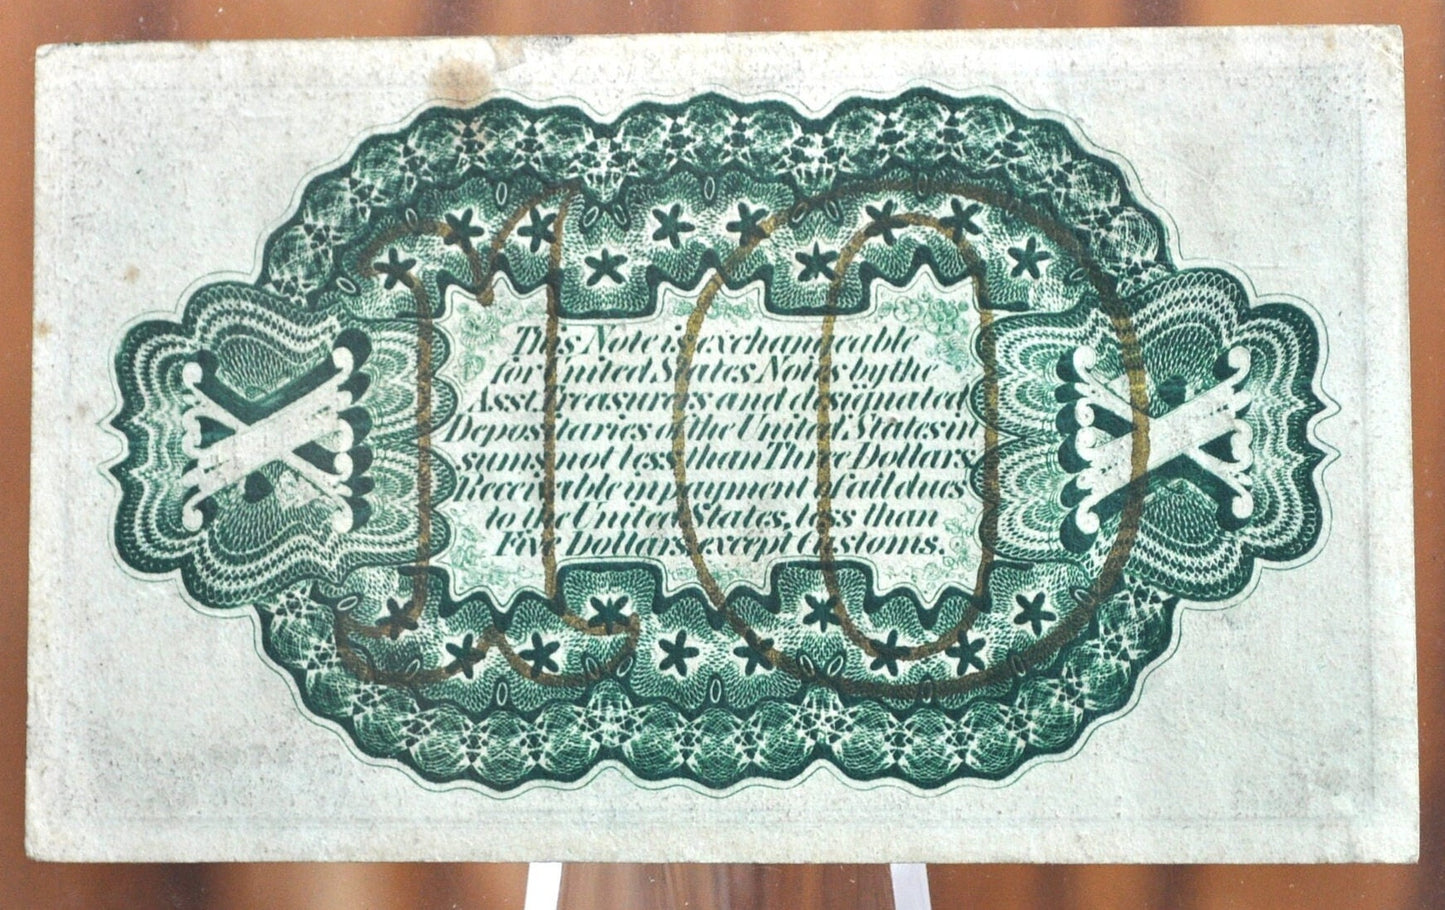 This Note is exchangeable
for United States Notes by the
Asst. Treasurers and designated
Depositaries of the United States in
sums not less than Three Dollars.
Receivable in payment of all dues
to the United States, less than
Five Dollars, except Customs.
X
10
X